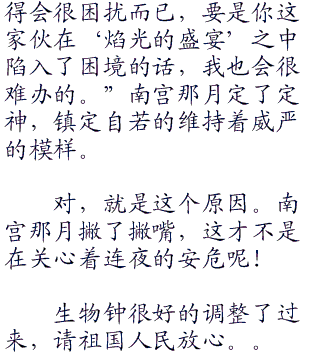 得会很困扰而已，要是你这
家伙在‘焰光的盛宴’之中
陷入了困境的话，我也会很
难办的。”南宫那月定了定
神，镇定自若的维持着威严
的模样。
对，就是这个原因。南
宫那月撇了撇嘴，这才不是
在关心着连夜的安危呢！
生物钟很好的调整了过
来，请祖国人民放心。。